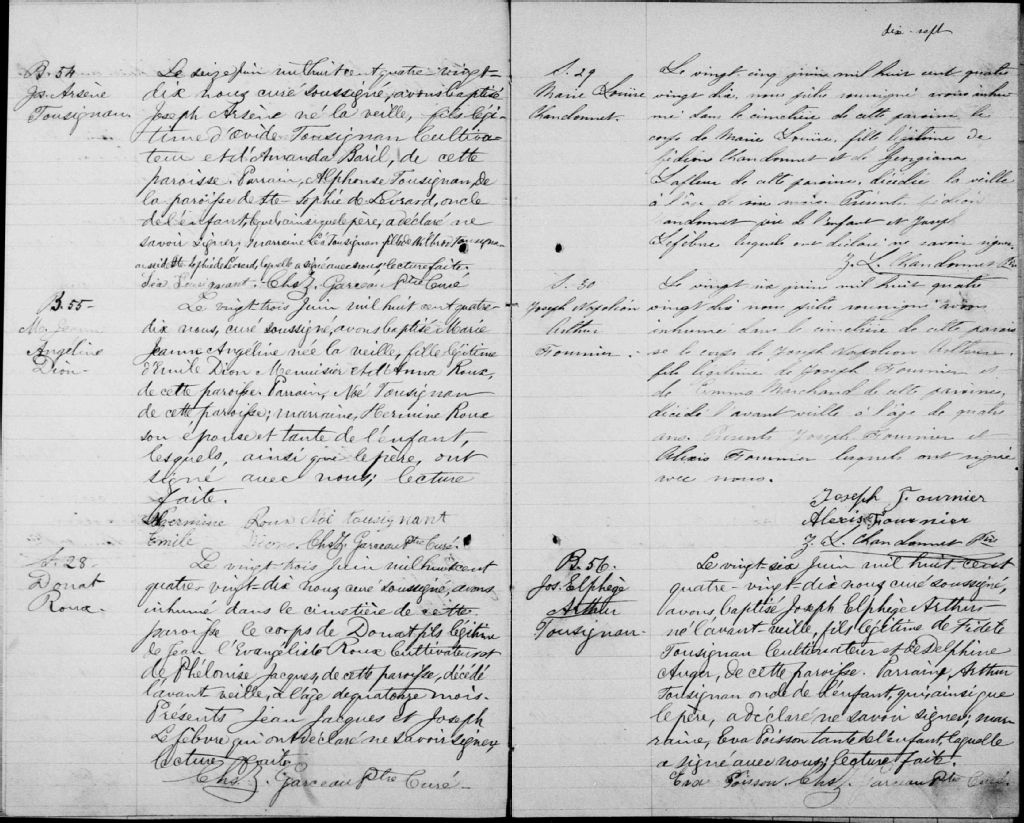 B. 54
Jos. Arsène
Tousignan
Le seize Juin mil huit cent quatre-vingt-
dix nous curé soussigné, avons baptisé
Joseph Arsène né la veille, fils légi-
time d'Ovide Tousignan Cultiva-
teur et d'Amanda Baril, de cette
paroisse. Parrain, Alphonse Tousignan, De
la paroisse de Ste Sophie de Levrard, oncle
de l'enfant, lequel ainsi que le père, a déclaré ne
savoir signer; marraine Léa Tousignan fille de
aussi de Ste Sophie de Levrard, laquelle a signé avec nous. Lecture faite.
Léa Tousignant. Chs Z. Garceau Ptre Curé
B. 55-
Mie Jeanne
Angéline
Dion-
Le vingt trois Juin mil huit cent quatre-
dix nous, curé soussigné, avons baptisé Marie
Jeanne Angéline née la veille, fille légitime
d'Emile Dion Menuisier et d'Anna Roux,
de cette paroisse. Parrain, Noé Tousignan
de cette paroisse; marraine, Hermine Roux
son épouse et tante de l'enfant,
lesquels, ainsi que le père, ont
signé avec nous; lecture
faite.
Hermine Roux Noé tousignant
Emile Dion. Chs Z. Garceau Ptre Curé.
S. 28-
Donat
Roux-
Le vingt trois Juin mil huit cent
quatre-vingt-dix nous curé soussigné, avons
inhumé dans le cimetière de cette
paroisse le corps de Donat fils légitime
de Jean l'Evangeliste Roux Cultivateur et
de Phélonise Jacques, de cette paroisse, décédé
l'avant veille, à l'âge de quatorze mois.
Présents Jean Jacques et Joseph
Lefebvre qui ont déclaré ne savoir signer,
lecture faite.
Chs Z. Garceau Ptre Curé-
dix-sept
S. 29
Marie Louise
Chandonnet.
Le vingt cinq juin mil huit cent quatre
vingt dix, nous prêtre soussigné avons inhu-
mé dans le cimetière de cette paroisse le
corps de Marie Louise, fille légitime de
Gédéon Chandonnet et de Georgiana
Lafleur de cette paroisse, décédée la veille
à l'âge de mois. Présents Gédéon
Chandonnet père de l'enfant et Joseph
Lefebvre lesquels ont déclaré ne savoir signer.
Z. L. Chandonnet Ptre
S. 30
Joseph Napoléon
Arthur
Fournier.
Le vingt six juin mil huit cent quatre
vingt dix nous prêtre soussigné avons
inhumé dans le cimetière de cette parois-
se le corps de Joseph Napoléon Arthur,
fils légitime de Joseph Fournier et
de Emma Marchand de cette paroisse,
décédé l'avant veille à l'âge de quatre
ans. Présents Joseph Fournier et
Alexis Fournier lesquels ont signé
avec nous.
Joseph Fournier
Alexis Fournier
Z. L. Chandonnet Ptre
B. 56.
Jos. Elphège
Arthur
Tousignan-
Le vingt six Juin mil huit cent
quatre-vingt-dix nous curé soussigné,
avons baptisé Joseph Elphège Arthur
né l'avant-veille, fils légitime de Fidèle
Tousignan Cultivateur et de Delphine
Auger, de cette paroisse. Parrain, Arthur
Tousignan oncle de l'enfant, qui, ainsi que
le père, a déclaré ne savoir signer; mar-
raine, Eva Poisson tante de l'enfant, laquelle
a signé avec nous; lecture faite.
Eva Poisson. Chs Z. Garceau Ptre Curé.